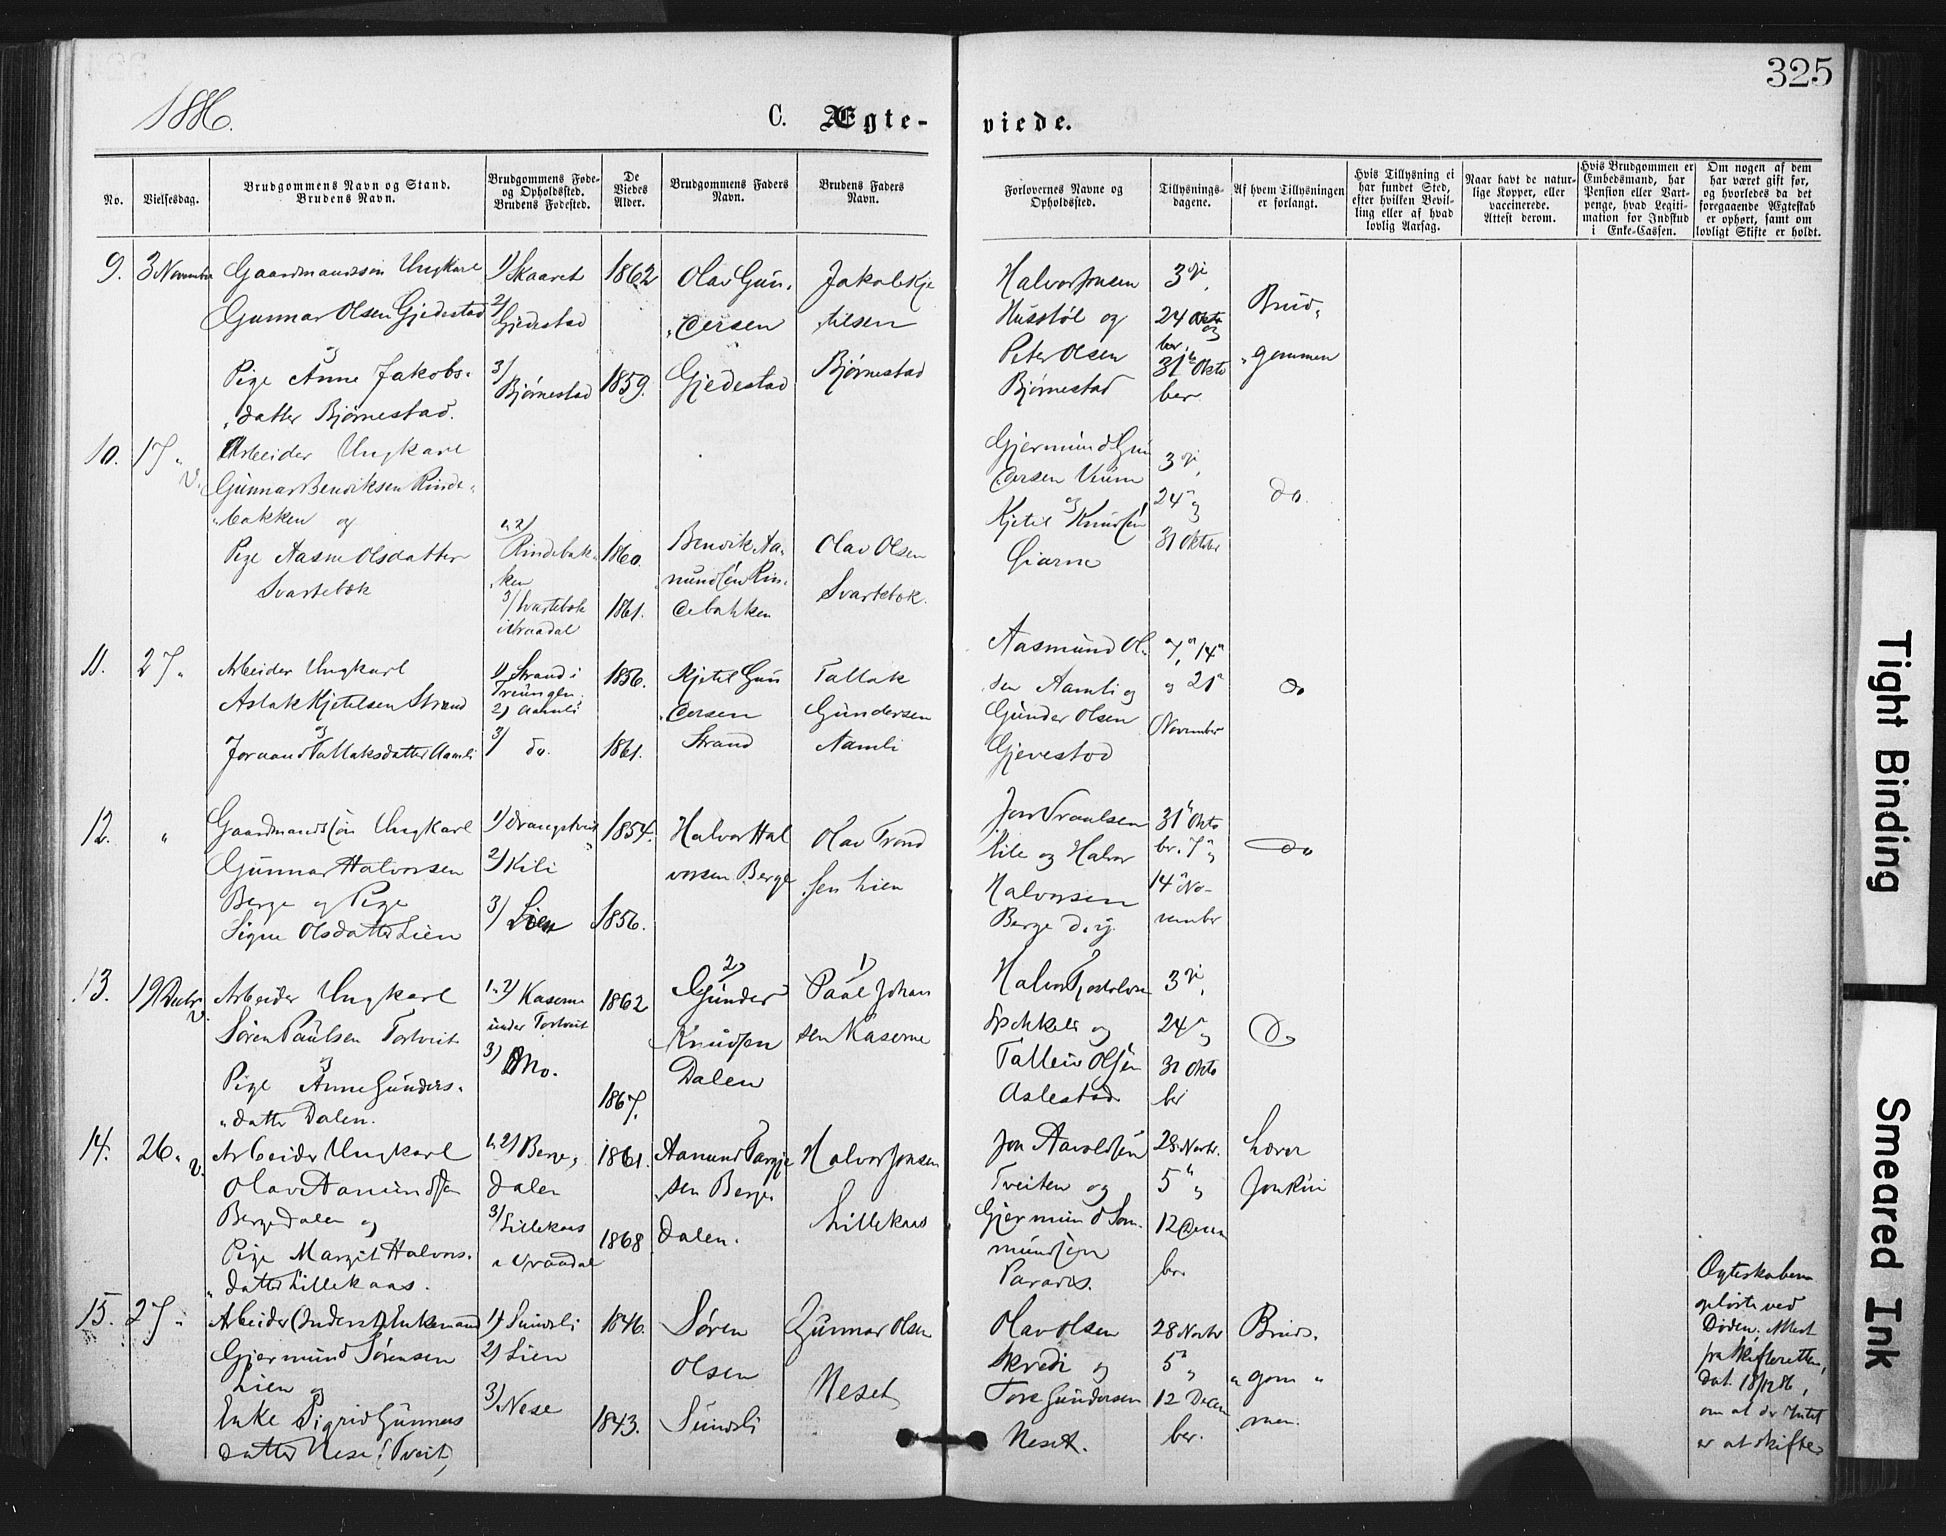 325
1886.
C. Ægte-
viede.
No.
Vielsesdag.
Brudgommens Navn og Stand.
Brudens Navn.
Brudgommens Føde-
og Opholdssted.
Brudens Fødested.
De
Viedes
Alder.
Brudgommens Faders
Navn.
Brudens Faders
Navn.
Forlovernes Navne og
Opholdssted.
Tillysnings-
dagene.
Af hvem Tillysningen
er forlangt.
Hvis Tillysning ei
har fundet Sted,
efter hvilken Bevil-
ling eller af hvad
lovlig Aarsag.
Naar havt de natur-
lige Kopper, eller
vaccinerede.
Attest derom.
Hvis Brudgommen er
Embedsmand, har
Pension eller Vart-
penge, hvad Legiti-
mation for Indskud
i Enke-Cassen.
Om nogen af dem
har været gift før,
og hvorledes da det
foregaaende Ægteskab
er ophørt, samt om
lovligt Skifte er holdt.
9.
3 November
Gaardmandssøn Ungkarl
Gunnar Olsen Gjedestad
og
Pige Anne Jakobs-
datter Bjørnestad.
1) Skaaret
2)
Gjedestad
3)
Bjørnestad
1862
1859.
Olav Gun-
dersen
Gjedestad
Jakob Kje
tilsen
Bjørnestad
Halvor Jonsen
Husstøl og
Peter Olsen
Bjørnestad
3die,
24 Okto
ber, og
31te Okto
ber
Brud-
gommen
10.
17 "
V.
Arbeider Ungkarl
Gunnar Bendiksen Rinde-
bakken og
Pige Aasne Olsdatter
Svartebæk
1, 2)
Rindebak-
ken
3) Svartebæk
i Vraadal
1860.
1861.
Bendik Aa-
mundsen Rin-
debakken
Olav Olsen
Svartebæk.
Gjermund Gun
dersen Veum
og
Kjetil Knudsen
3die,
24 " og
31 Oktober
do.
11.
27 "
Arbeider Ungkarl
Aslak Kjetilsen Strand
og
Jorand Tallaksdatter Aamli
1) Strand i
Treungen
2) Aamli
3) do.
1856.
1861.
Kjetil Gun
dersen
Strand
Tallak
Gundersen
Aamli
Aasmund Ol-
sen Aamli og
Gunder Olsen
Gjevestad
7, 14
og 21
November
do
12.
"
Gaardmandssøn Ungkarl
Gunnar Halvorsen
Berge og Pige
Signe Olsdatter Lien
2) Kili
3) Lien
1854.
1856.
Halvor Hal
vorsen Berge
Olav Trond
sen Lien
Jon Traulsen
Kile og Halvor
Halvorsen
Berge d. y.
31 Okto
br. 7 og
14 No-
vember
do
13.
19 Decbr
V.
Arbeider Ungkarl
Søren Paulsen Tortveit
og
Pige Anne Gunders-
datter Dalen.
1, 2) Kaserne
under Tortveit
3) Mo.
1862
1867.
2)
Gunder
Knudsen
Dalen
1)
Paal Johan
sen Kaserne
og
Talleiv Olsen
Aslestad
3die,
24 " og
31 Okto
ber
Do
14.
26 "
V.
Arbeider Ungkarl
Olav Aamundsen
Bergedalen og
Pige Margit Halvors-
datter Lillekaas.
1, 2) Berge-
dalen
3) Lillekaas
i Vraadal
1861.
1868
Aamund Targje
sen Berge
dalen.
Halvor Jonsen
Lillekaas
Jon Aavoldsen
Tveiten og
Gjermund Som-
mundsen
Paradis.
28 Novbr.
5 " og
12 Decem
ber.
Lærer
Jon Kili
15.
27 "
Arbeider (Inderst) Enkemand
Gjermund Sørensen
Lien og
Enke Sigrid Gunnars
datter Nese (Tveit)
1) Sundsli
2) Lien
3) Nese
1846.
1843.
Søren
Olsen
Sundsli
Gunnar Olsen
Neset
Olav Olsen
Skredi og
Tore Gundersen
Neset.
28 Novbr
5 " og
12 Decem
ber.
Brud-
gom
men.
Ægteskaberne
opløste ved
Døden. Attest
fra Skifteretten,
dat. 18/12 86,
om at der Intet
er at skifte
Tight Binding
Smeared Ink